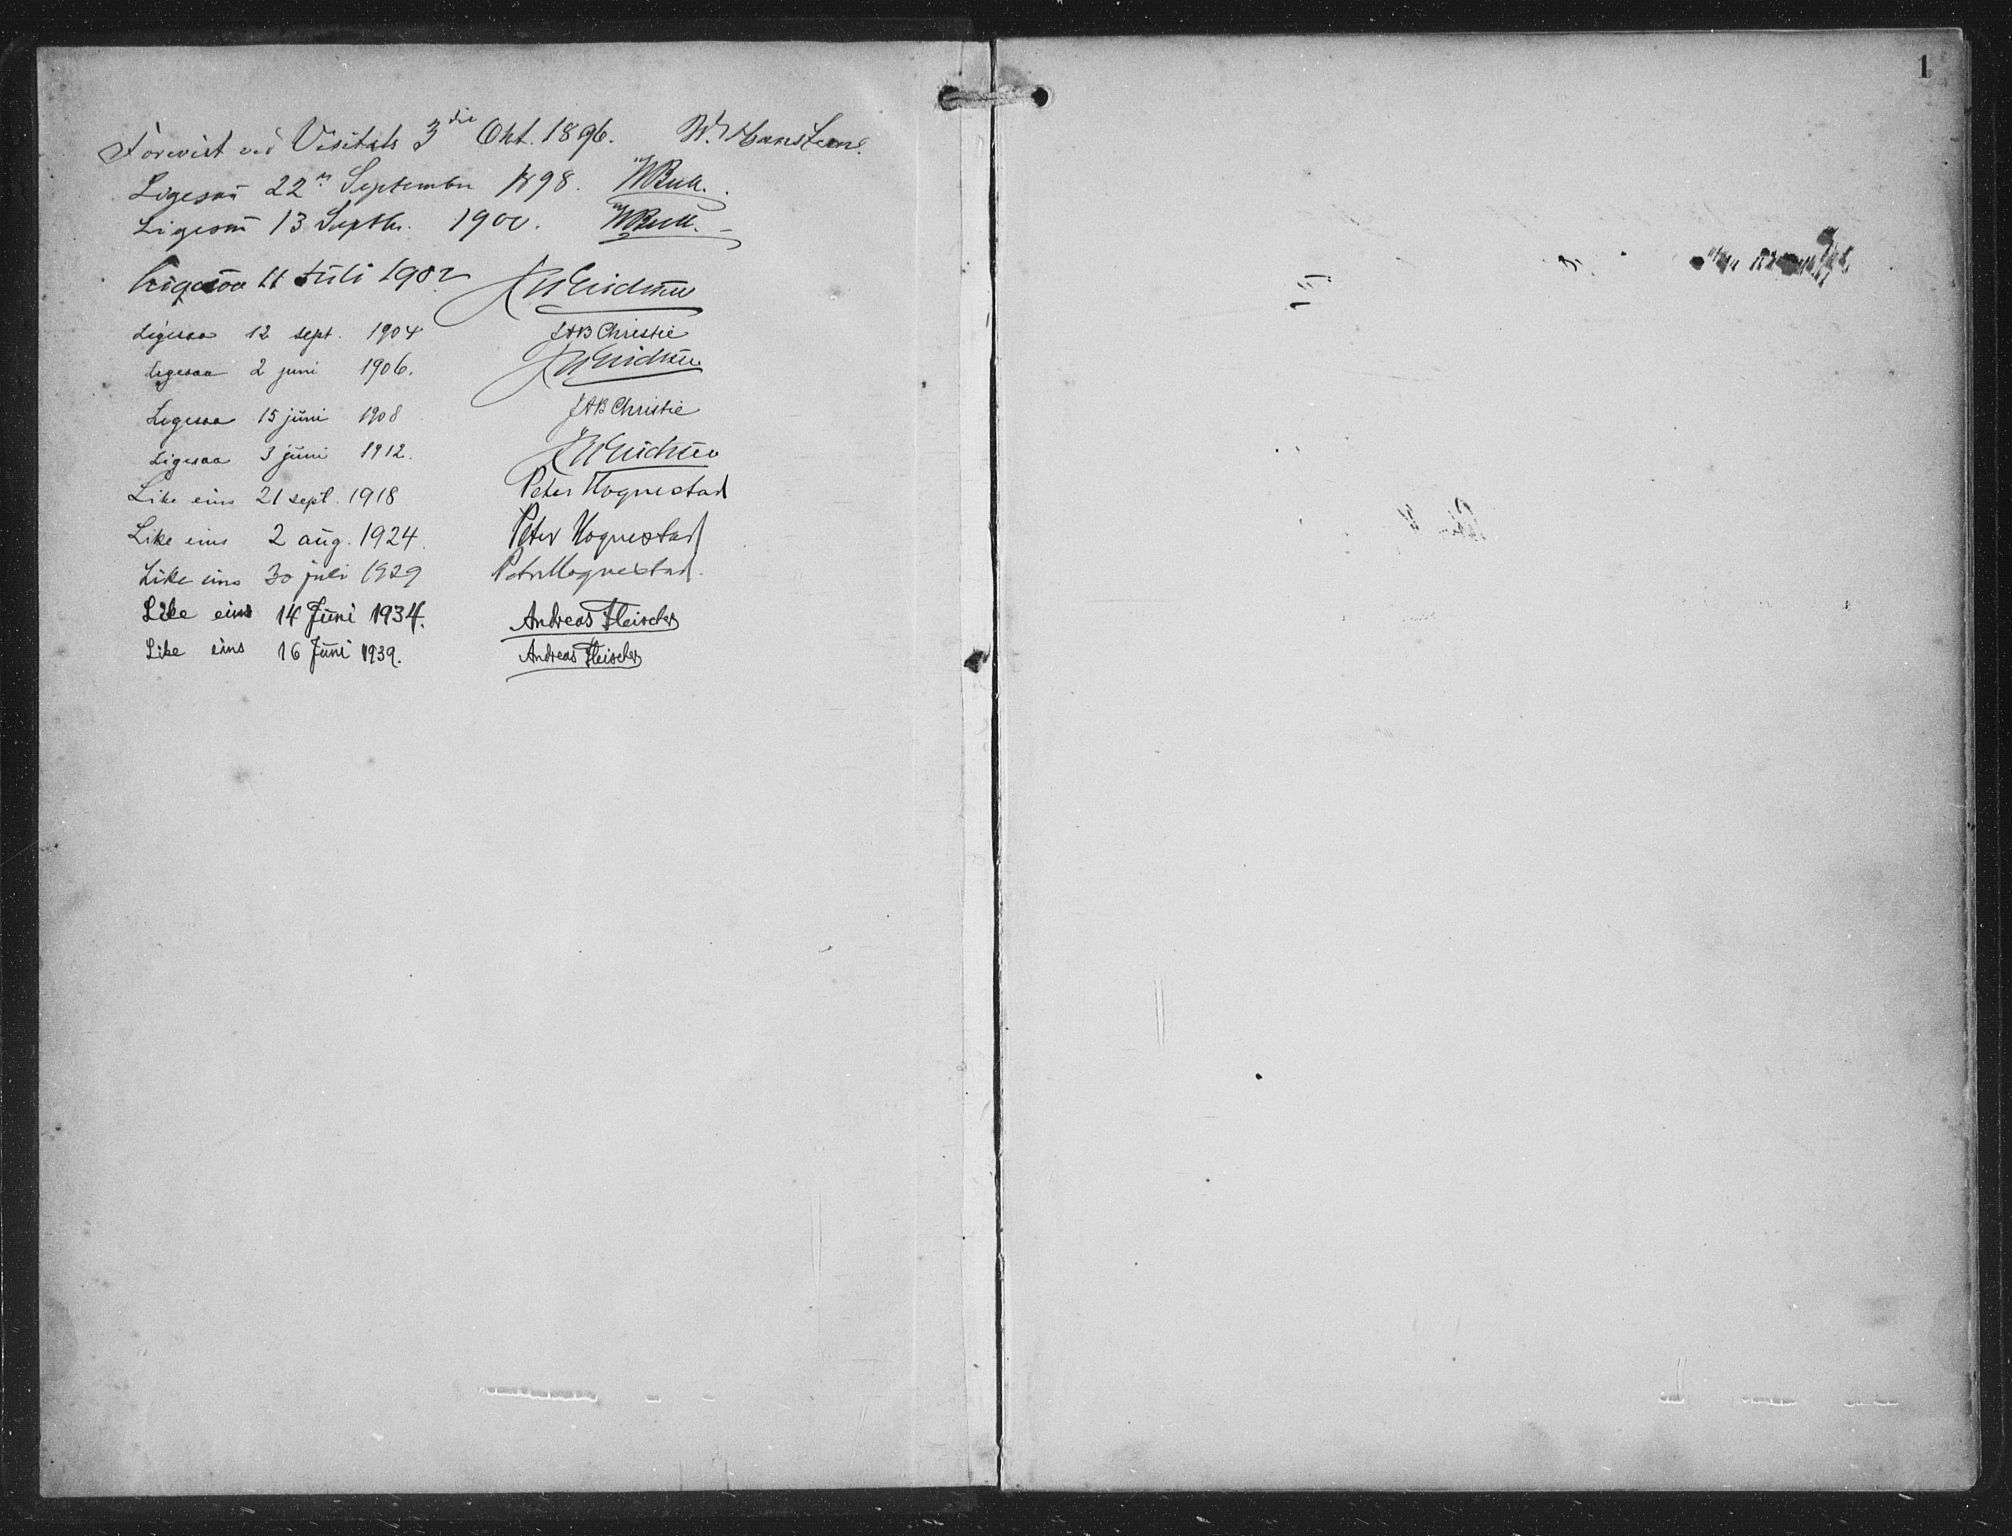 Forevist ved Visitats 3die Okt. 1896. W. Hansteen.
Ligesaa 22n September 1898.
Ligesaa 13 Septbr. 1900.
Ligesaa 11 Juli 1902
Ligesaa 12 sept. 1904 JAB Christie
Ligesaa 2 juni 1906.
Ligesaa 15 juni 1908 JAB Christie
Ligesaa 3 juni 1912.
Like eins 21 sept. 1918 Peter Hognestad
Like eins 2 aug. 1924. Peter Hognestad
Like eins 30 juli 1929 Peter Hognestad.
Like eins 14 Juni 1934. Andreas Fleischer
Like eins 16 Juni 1939. Andreas Fleischer
1